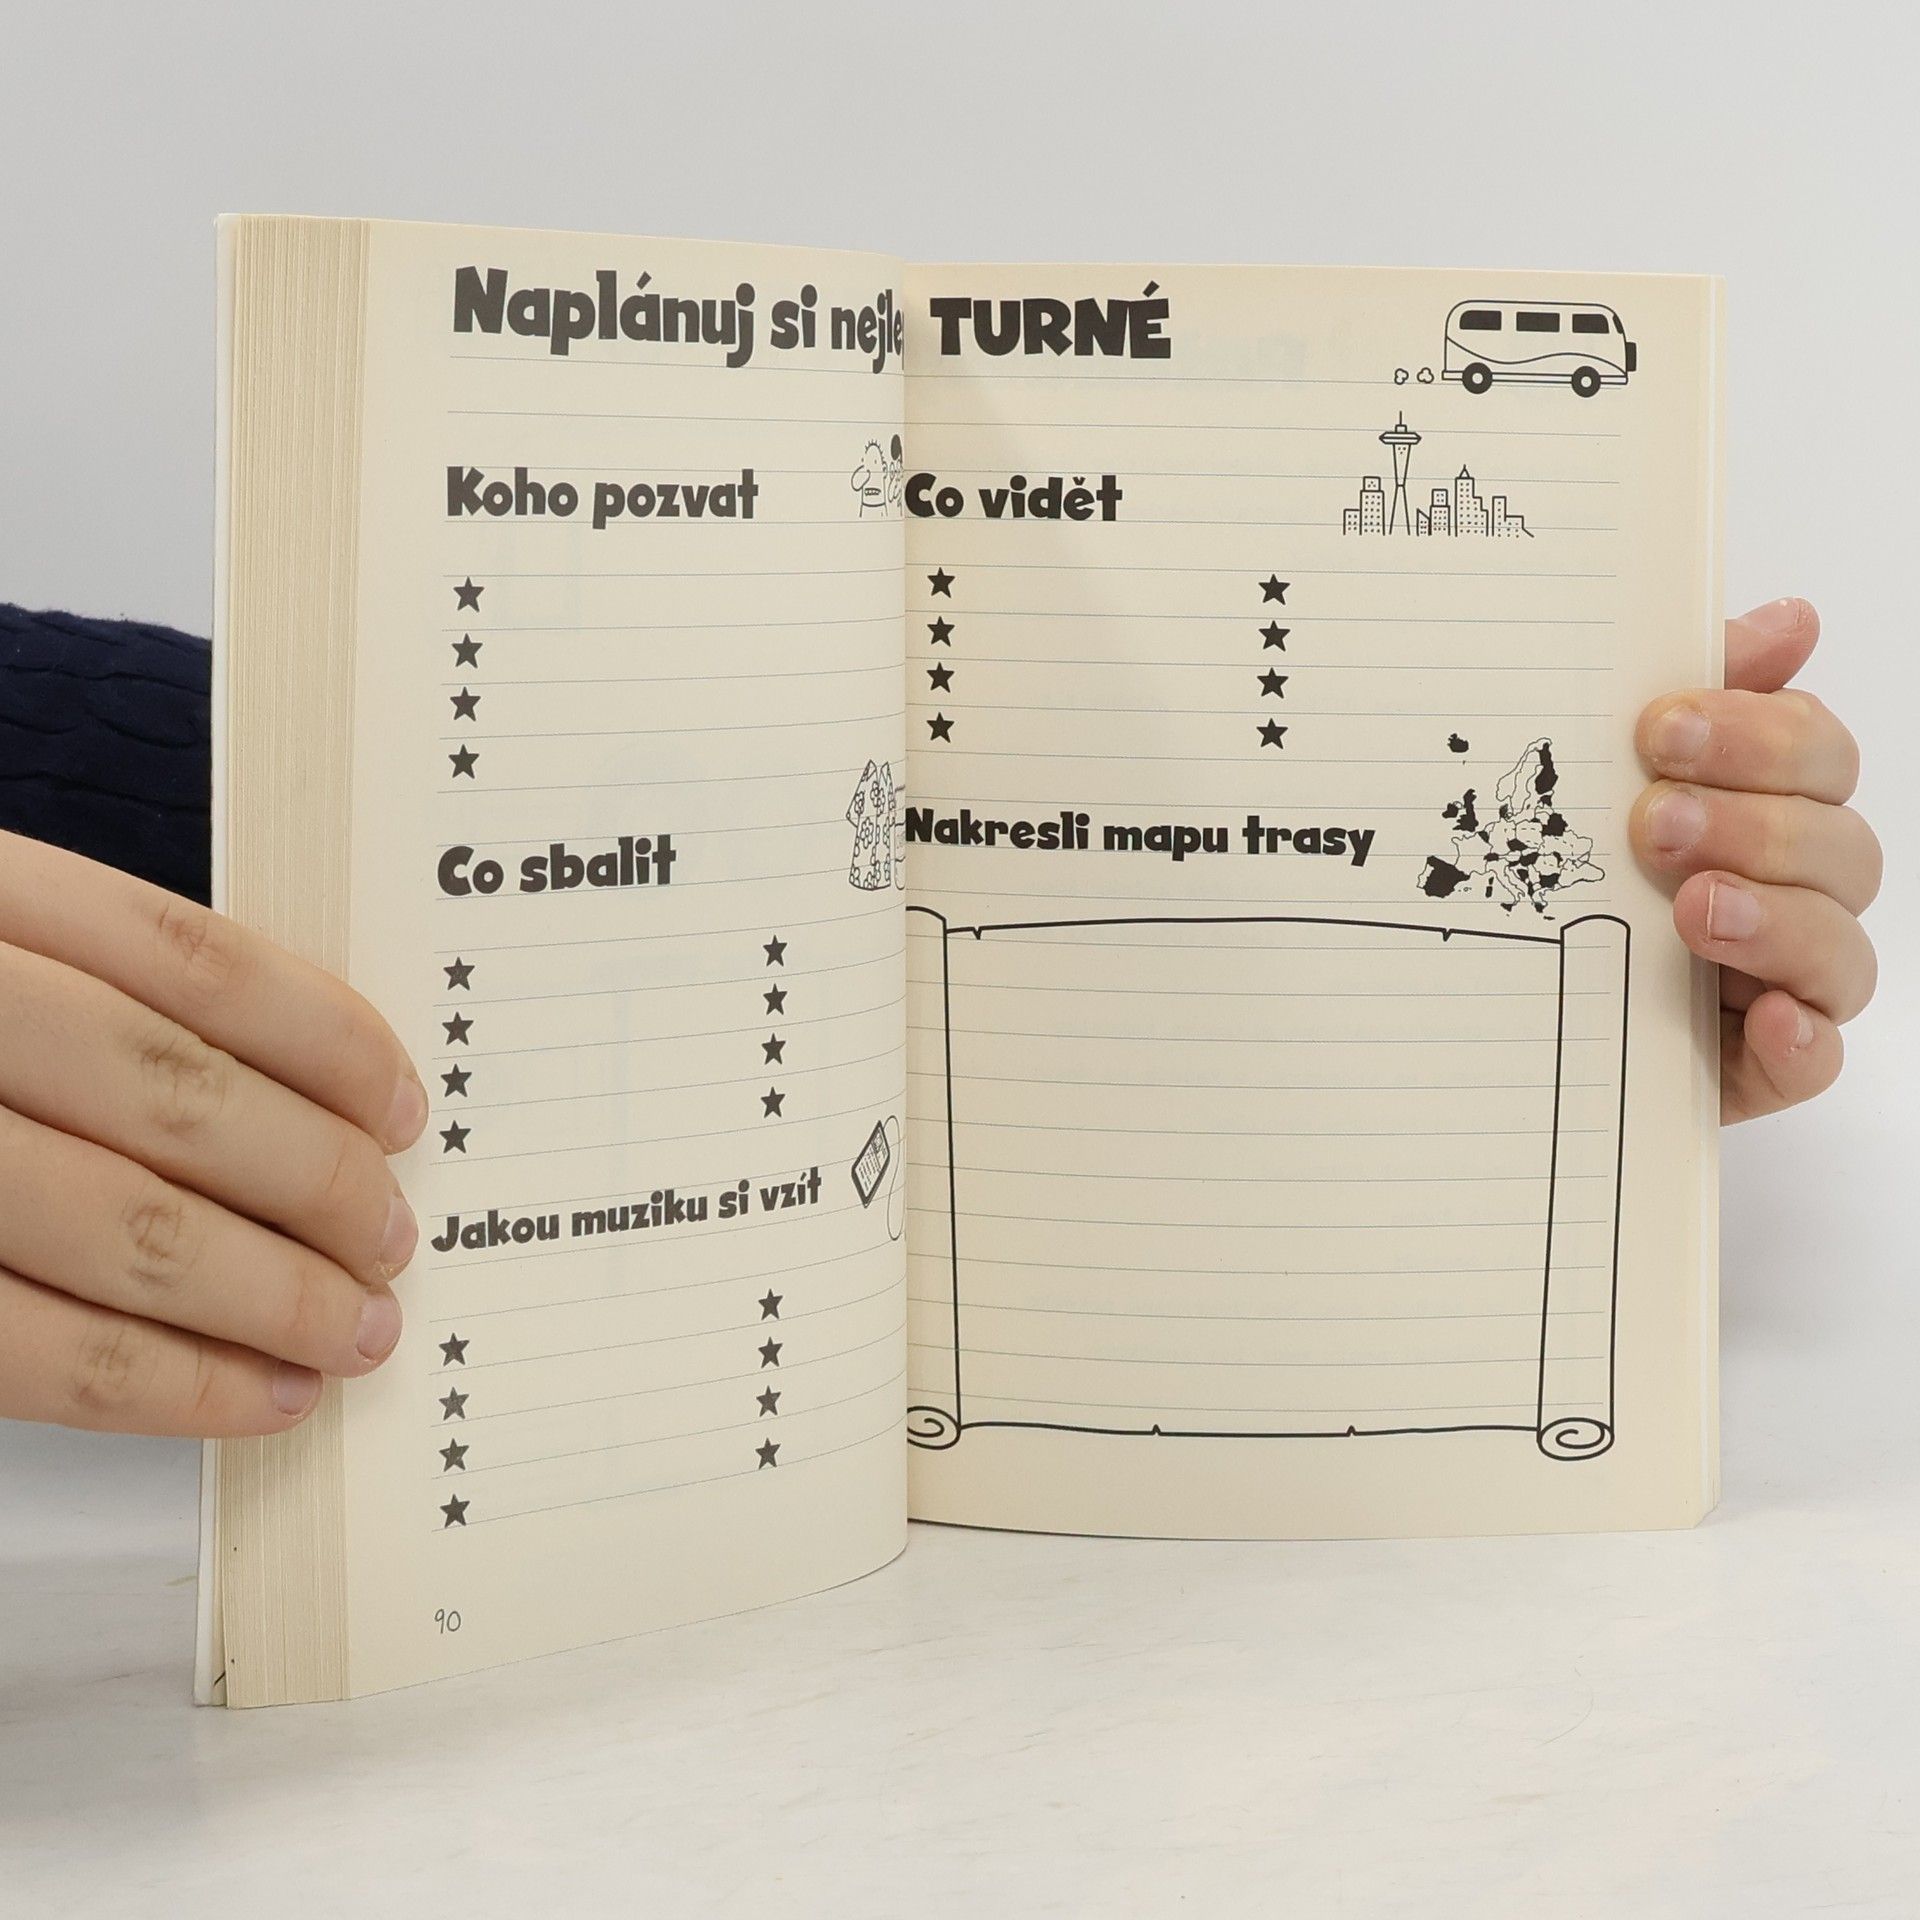 Naplánuj si
TURNÉ
Koho pozvat
Co sbalit
Jakou muziku si vzít
90
Co vidět
Nakresli mapu trasy